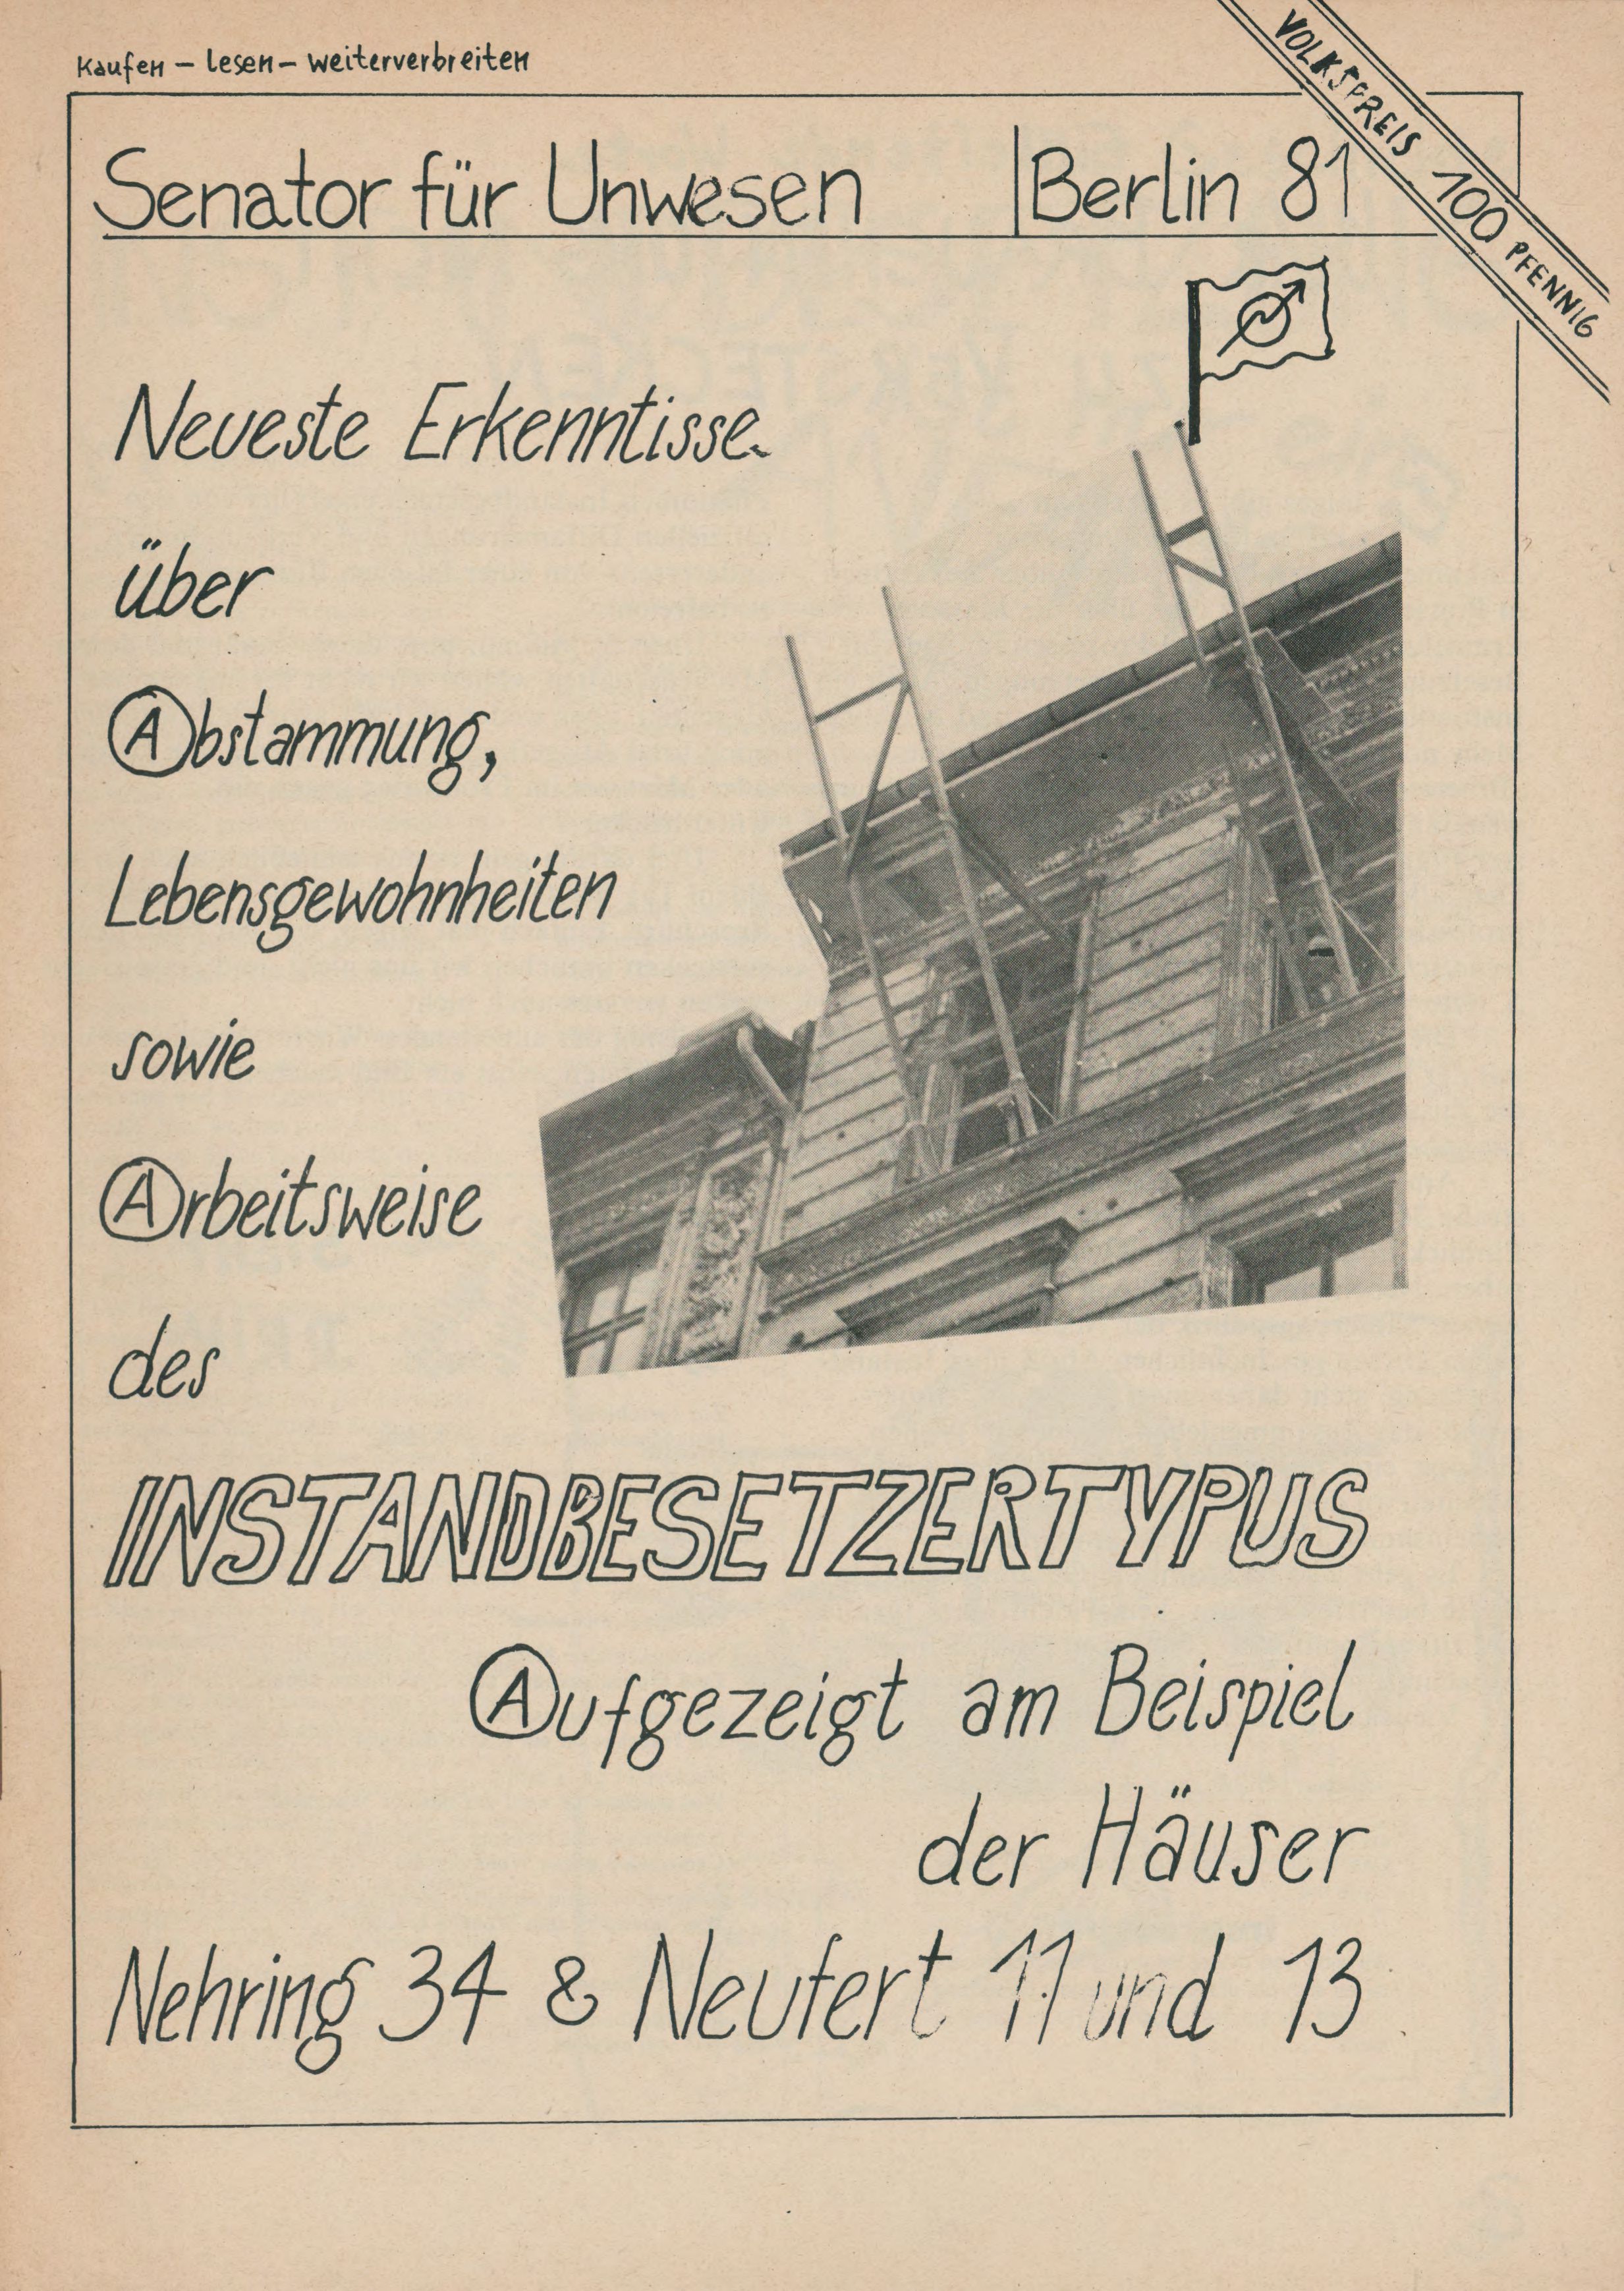 Kaufen – lesen – weiterverbreiten
VOLKSPREIS 100 PFENNIG
Senator für Unwesen Berlin 81
Neueste Erkenntisse
über
Abstammung,
Lebensgewohnheiten
sowie
Arbeitsweise
des
INSTANDBESETZERTYPUS
Aufgezeigt am Beispiel
der Häuser
Nehring 34 & Neufert 11 und 13